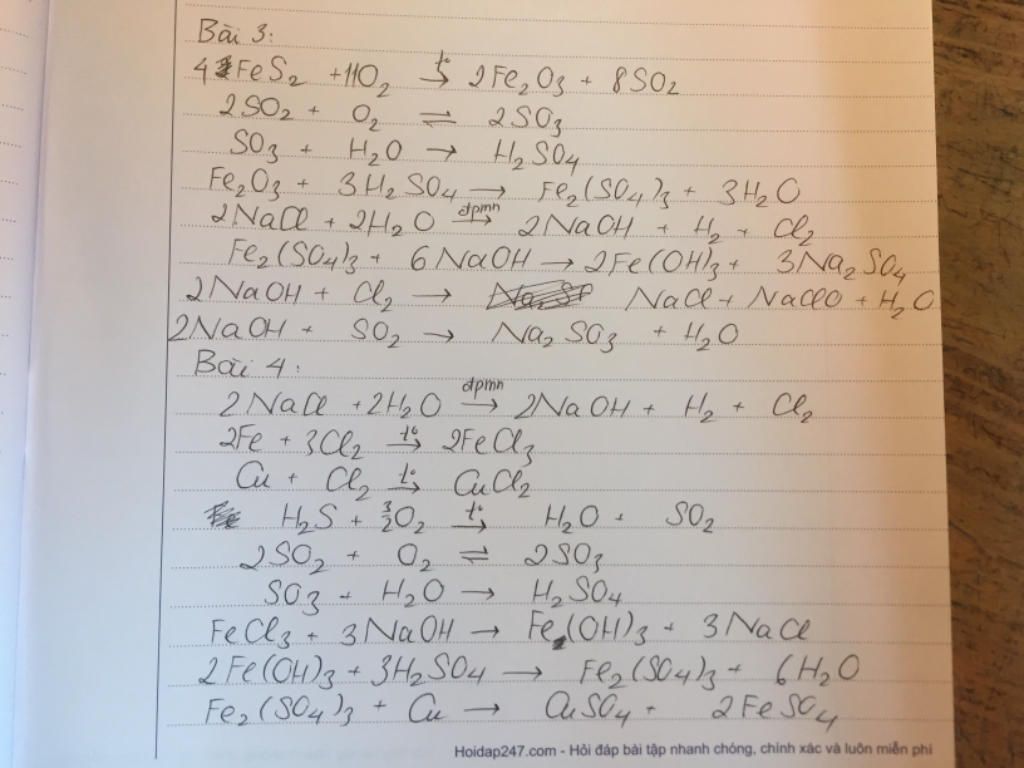 Bài 3:
4FeS₂ + 11O₂ →(t°) 2Fe₂O₃ + 8SO₂
2SO₂ + O₂ ⇌ 2SO₃
SO₃ + H₂O → H₂SO₄
Fe₂O₃ + 3H₂SO₄ → Fe₂(SO₄)₃ + 3H₂O
2NaCl + 2H₂O →(dpmn) 2NaOH + H₂ + Cl₂
Fe₂(SO₄)₃ + 6NaOH → 2Fe(OH)₃ + 3Na₂SO₄
2NaOH + Cl₂ → NaCl + NaClO + H₂O
2NaOH + SO₂ → Na₂SO₃ + H₂O
Bài 4:
2NaCl + 2H₂O →(dpmn) 2NaOH + H₂ + Cl₂
2Fe + 3Cl₂ →(t°) 2FeCl₃
Cu + Cl₂ →(t°) CuCl₂
H₂S + 3/2O₂ →(t°) H₂O + SO₂
2SO₂ + O₂ ⇌ 2SO₃
SO₃ + H₂O → H₂SO₄
FeCl₃ + 3NaOH → Fe(OH)₃ + 3NaCl
2Fe(OH)₃ + 3H₂SO₄ → Fe₂(SO₄)₃ + 6H₂O
Fe₂(SO₄)₃ + Cu → CuSO₄ + 2FeSO₄
Hoidap247.com - Hỏi đáp bài tập nhanh chóng, chính xác và luôn miễn phí